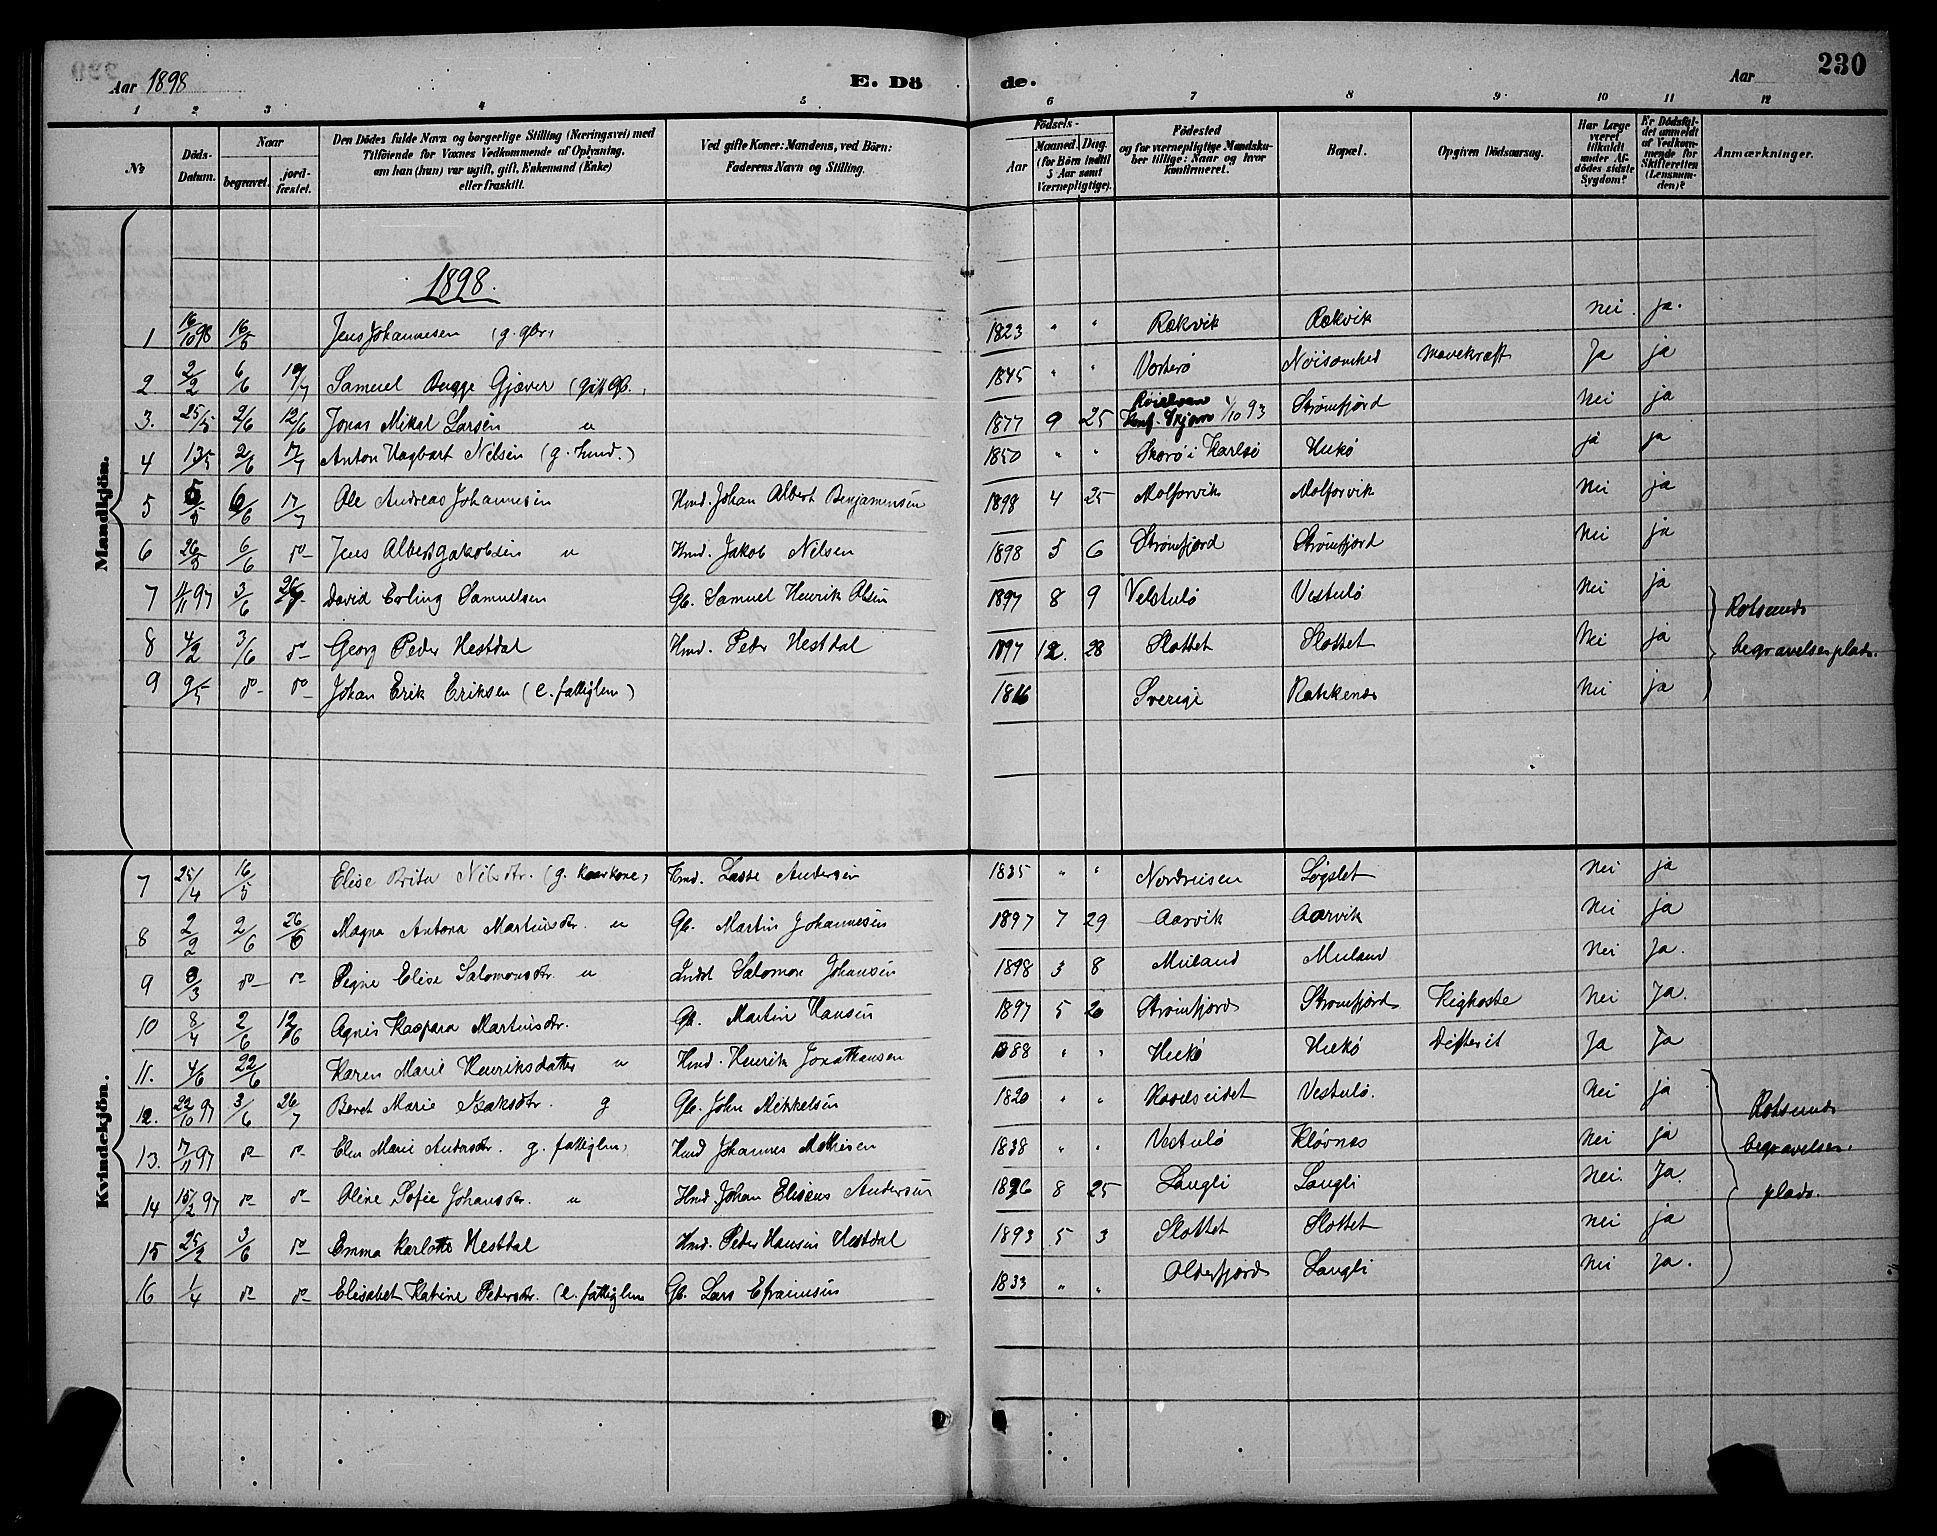 Aar 1898 E. Dö de. Aar 230
1 2 3 4 5 6 7 8 9 10 11 12
No
Döds-Datum.
Naar
begravet.
jord-fæstet.
Den Dödes fulde Navn og borgerlige Stilling (Næringsvei) med
Tilföiende for Voxnes Vedkommende af Oplysning,
om han (hun) var ugift, gift, Enkemand (Enke)
eller fraskilt.
Ved gifte Koner: Mandens, ved Börn:
Faderens Navn og Stilling.
Födsels-
Aar
Maaned Dag.
(for Börn indtil
5 Aar samt
Værnepligtige).
Födested
og for værnepligtige Mandska-
ber tillige: Naar og hvor
konfirmeret.
Bopæl.
Opgiven Dödsaarsag.
Har Læge
været
tilkaldt
under Af-
dödes sidste
Sygdom?
Er Dödsfal-
det anmeldt
af Vedkom-
mende for
Skifteretten
(Lensman-
den)?
Anmærkninger.
Mandkjön.
1898.
1 16/10 98 16/5 Jens Johannesen (g. gbr. 1823 " " Rækvik Rækvik nei ja.
2 2/2 6/6 17/7 Samuel Bugge Gjæver (gift Gb. 1845 " " Vorterø Noisomhed mavekræft Ja ja
3. 25/5 2/6 12/6 Jonas Mikal Larsen u 1877 9 25 Konf. Skjærvø 1/10 93 Strømfjord nei ja
4 13/5 2/6 17/7 Anton Hagbart Nilsen (g. Hmd.) 1850 " " Skorø i Karlsø Hukø ja ja
5 5/5 6/6 17/7 Ole Andreas Johannesen Hmd. Johan Albert Benjaminsen 1898 4 25 Molforvik Molforvik nei ja
6 26/5 6/6 do Jens Albert Jakobsen u Hmd. Jakob Nilsen 1898 5 6 Strømfjord Strømfjord nei ja
7 11/11 97 3/6 26/7 David Erling Samuelsen Gb. Samuel Henrik Olsen 1897 8 9 Vestulø Vestulø nei ja Rotsunds
8 4/2 3/6 do Georg Peder Hestdal Hmd. Peder Hestdal 1897 12. 28 Slottet Slottet nei ja begravelsesplads.
9 9/5 do do Johan Erik Eriksen (e. fattiglem) 1816 Sverige Rakkenes nei ja
Kvindekjön.
7 25/4 16/5 Elise Brita Nilsdtr. (g. kaarkone) Hmd. Lasse Andersen 1835 " " Nordreisen Løgslet nei ja
8 2/2 2/6 26/6 Magna Antona Martinsdtr. u Gb. Martin Johannesen 1897 7 29 Aarvik Aarvik nei ja
9 8/3 do do Signe Elise Salomonsdtr. u Indst Salomon Johansen 1898 3 8 Meiland Meiland nei Ja.
10 8/4 2/6 12/6 Agnes Kaspara Martinsdtr. Gb. Martin Hansen 1897 5 20 Strømfjord Strømfjord Kighoste nei Ja.
11. 4/6 22/6 Karen Marie Henriksdatter u Hmd. Henrik Jonathansen 1888 " " Hukø Hukø Difterit Ja Ja
12. 22/10 97 3/6 26/7 Beret Marie Isaksdtr. g Gb. John Mikkelsen 1820 " " Vestulø. nei ja Rotsunds
13. 17/11 97 do do Elen Marie Andersdtr. g. fattiglem) Hmd Johannes Mathisen 1838 " " Vestulø Kløvnes nei ja begravelses.
14 15/2 97 do do Oline Sofie Johansdtr. u Hmd Johan Eliseus Andersen 1896 8 25 Langli Langli nei. Ja. plads.
15 25/2 3/6 do Emma Karlotte Hestdal Hmd. Peder Hansen Hestdal 1893 5 3 Slottet Slottet nei ja
16 1/4 do do Elisabet Katrine Pedersdtr. (e. fattiglem Gb. Lars Efraimsen 1833 " " Olderfjord Langli nei ja.